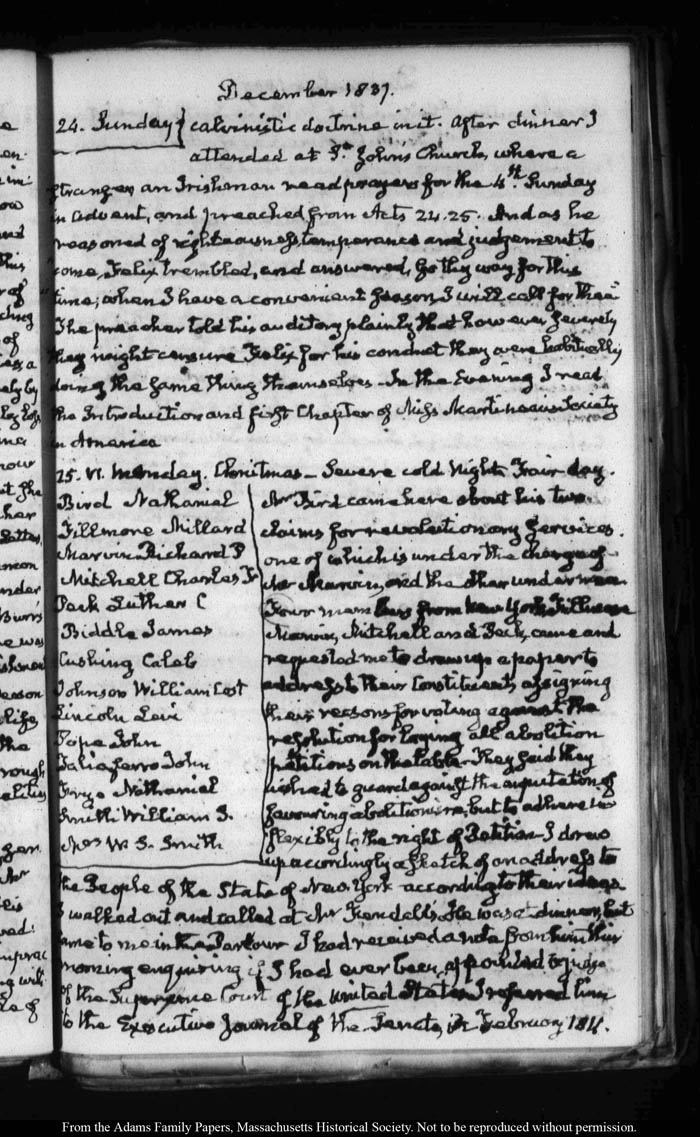 December 1837.
24. Sunday} calvinistic doctrine in it. After dinner I
attended at St. John's Church, where a
stranger, an Irishman read prayers for the 4th. Sunday
in advent, and preached from Acts 24.25. And as he
reasoned of righteousness temperance and judgement to
come, Felix trembled, and answered, Go thy way for this
time; when I have a convenient season, I will call for thee"
The preacher told his auditory plainly that however severely
they might censure Felix for his conduct they were habitually
doing the same thing themselves—In the Evening I read
the Introduction and first Chapter of Miss Martineau's Society
in America
25. VI. Monday. Christmas—Severe cold Night. Fair day.
Bird Nathaniel
Fillmore Millard
Marvin Richard P
Mitchell Charles F
Peck Luther C
Biddle James
Cushing Caleb
Johnson William Cost
Lincoln Levi
Pope John
Taliaferro John
Nathaniel
Smith William S.
Mrs W. S. Smith
Mr Bird came here about his two
claims for revolutionary services.
one of which is under the charge of
Mr Marvin, and the other under
Four members from New York Fillmore
Marvin, Mitchell and Peck, came and
requested me to draw up a paper to
address to their Constituents, assigning
their reasons for voting against the
resolution for laying all abolition
petitions on the table. They said they
wished to guard against the imputation of
favouring abolitionism, but to adhere in
flexibly to the right of Petition—I drew
up accordingly a sketch of an address to
the People of the State of New York according to their ideas.
I walked out and called at Mr Kendell's. He was at dinner, but
came to me in the Parlour. I had received a note from him this
morning enquiring if I had ever been appointed a judge
of the Supreme Court of the United States. I referred him
to the Executive Journal of the Senate, in February 1811.
From the Adams Family Papers, Massachusetts Historical Society. Not to be reproduced without permission.